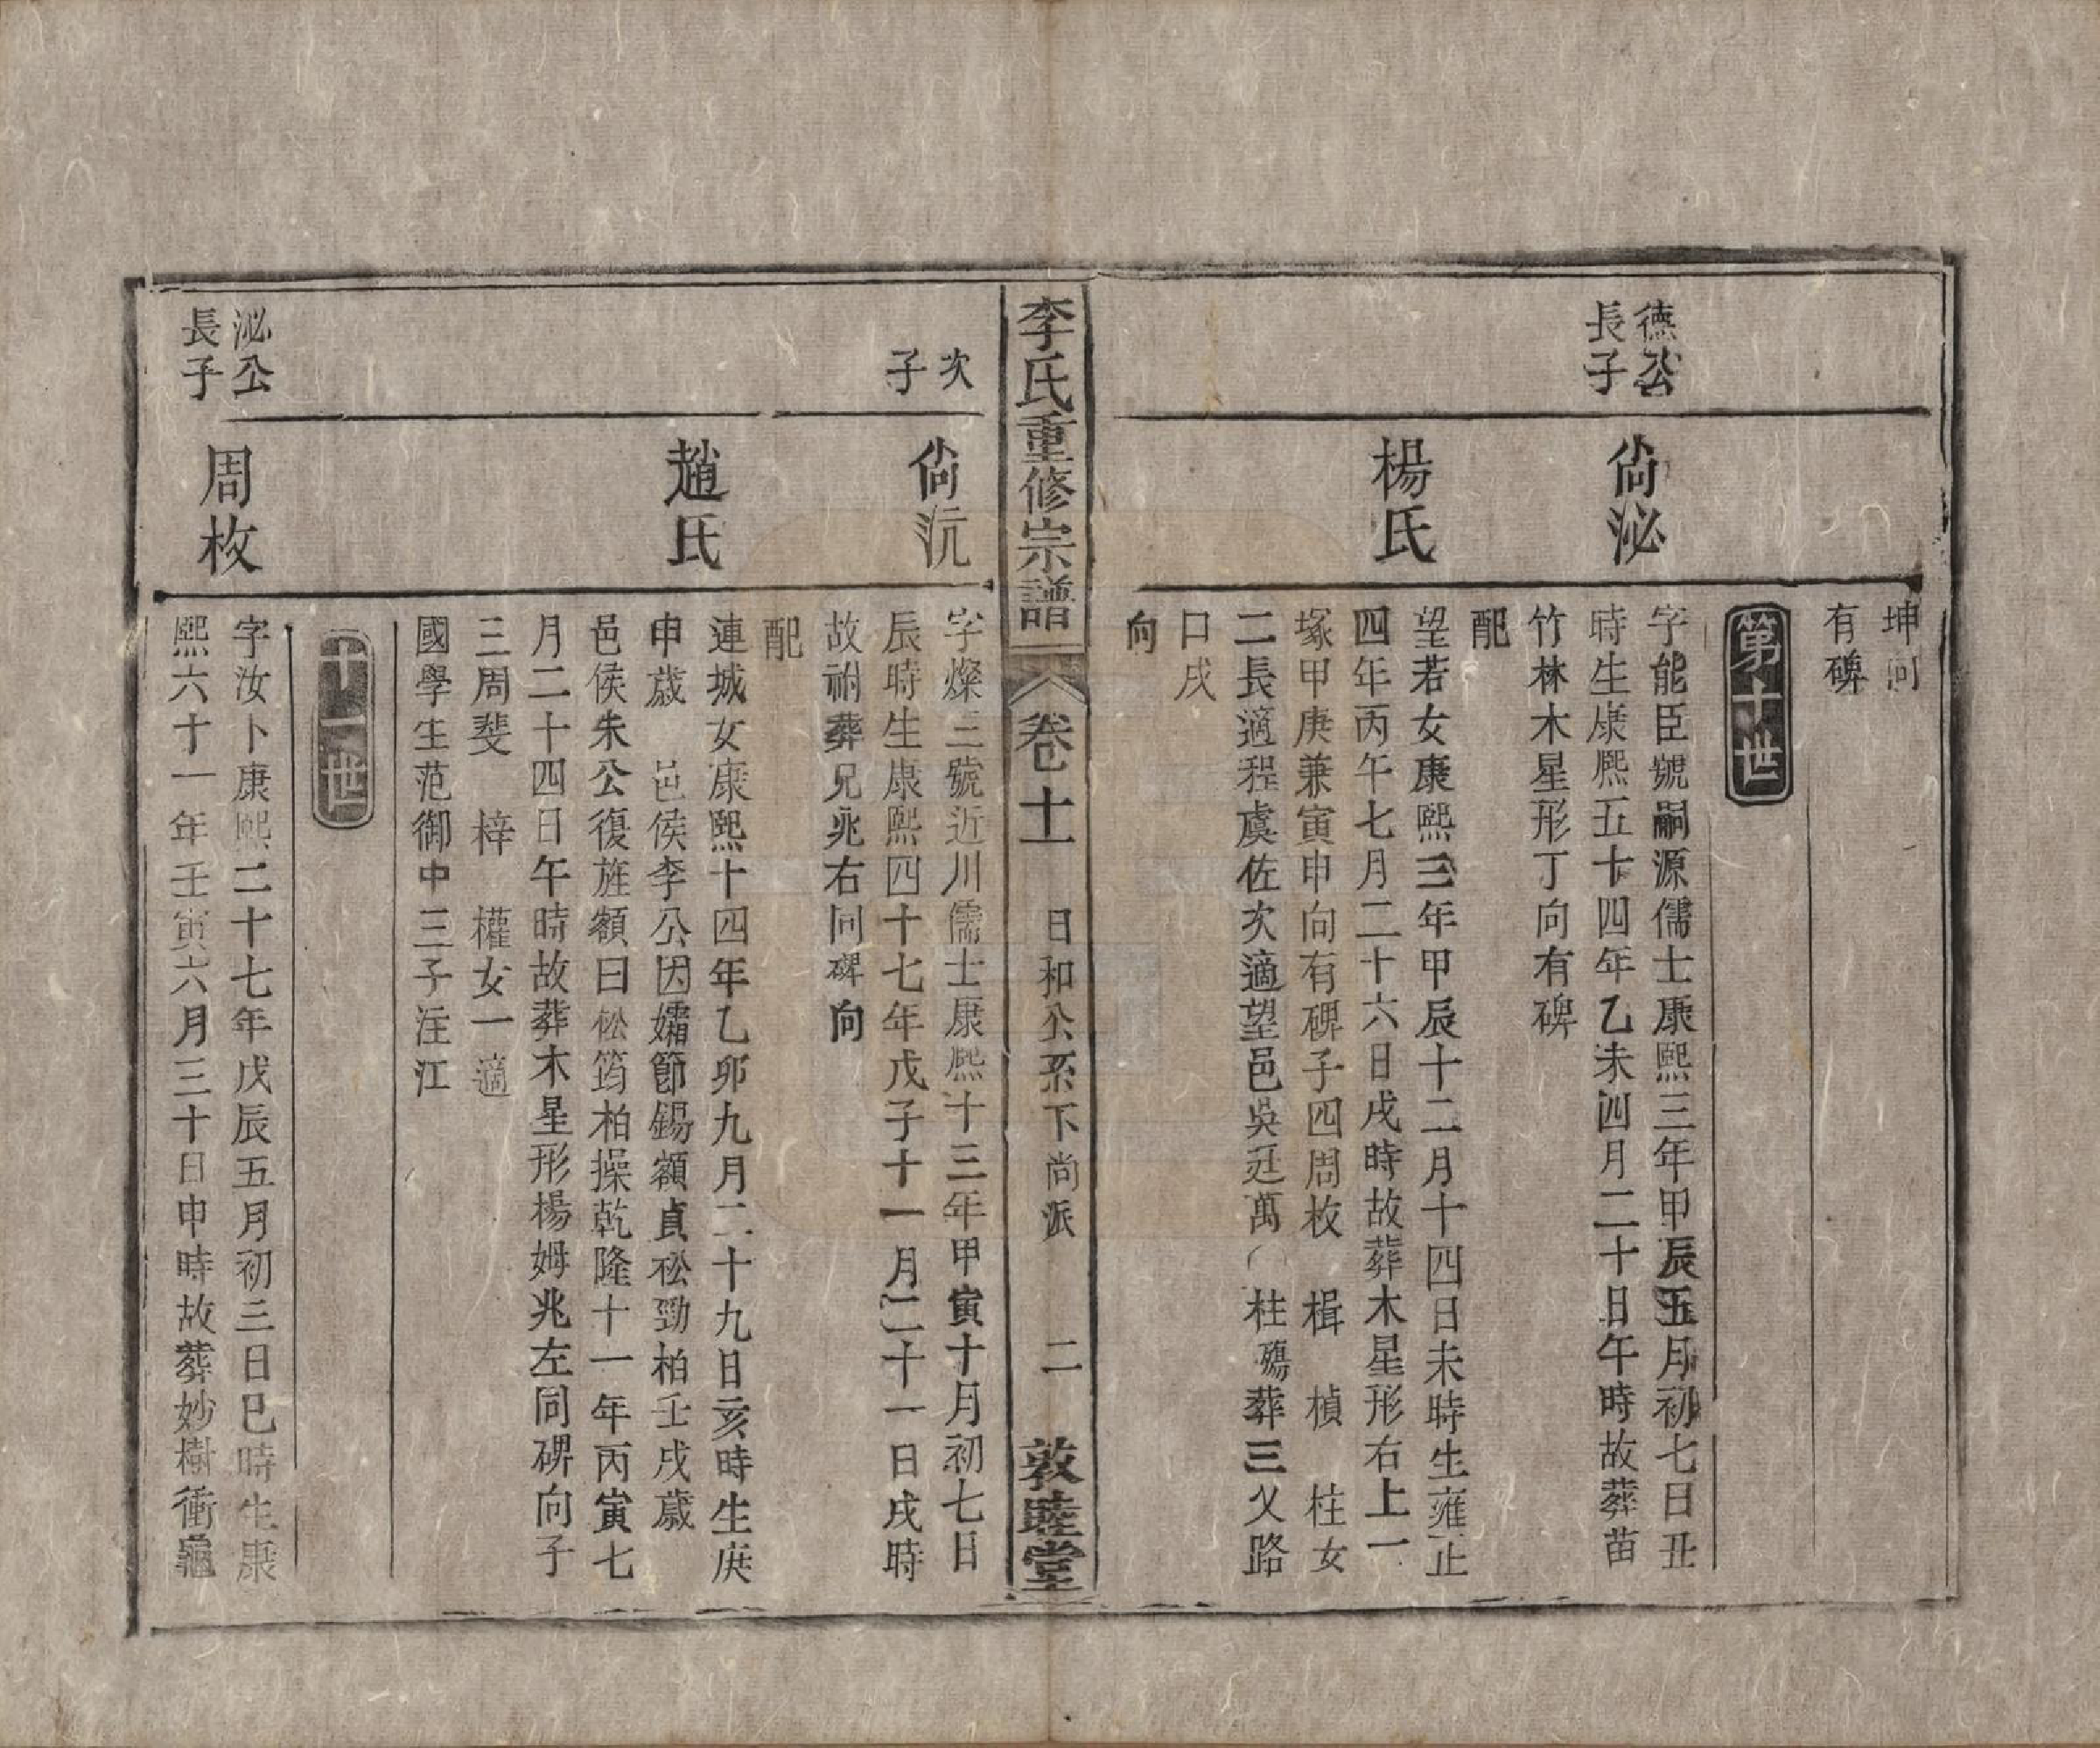 坤向
有碑
第十世
德公
長子
尙泌
字能臣號嗣源儒士康熙三年甲辰五月初七日丑
時生康熙五十四年乙未四月二十日午時故葬苗
竹林木星形丁向有碑
楊氏
配
望若女康熙三年甲辰十二月十四日未時生雍正
四年丙午七月二十六日戌時故葬木星形右上一
塚甲庚兼寅申向有碑子四周枚 楫 楨 柱女
二長適程虞佐次適望邑吳廷萬 柱殤葬三乂路
口戌
向
李氏重修宗譜
卷十一
日和公系下尚派
二
敦睦堂
次
子
尙沅
字燦三號近川儒士康熙十三年甲寅十月初七日
辰時生康熙四十七年戊子十一月二十一日戌時
故祔葬兄兆右同碑向
趙氏
配
連城女康熙十四年乙卯九月二十九日亥時生庚
申歲 邑侯李公因孀節錫額貞松勁柏壬戌歲
邑侯朱公復旌額曰松筠柏操乾隆十一年丙寅七
月二十四日午時故葬木星形楊姆兆左同碑向子
三周斐 梓 權女一適
國學生范御中三子注江
十一世
泌公
長子
周枚
字汝卜康熙二十七年戊辰五月初三日巳時生康
熙六十一年壬寅六月三十日申時故葬妙樹衝龜